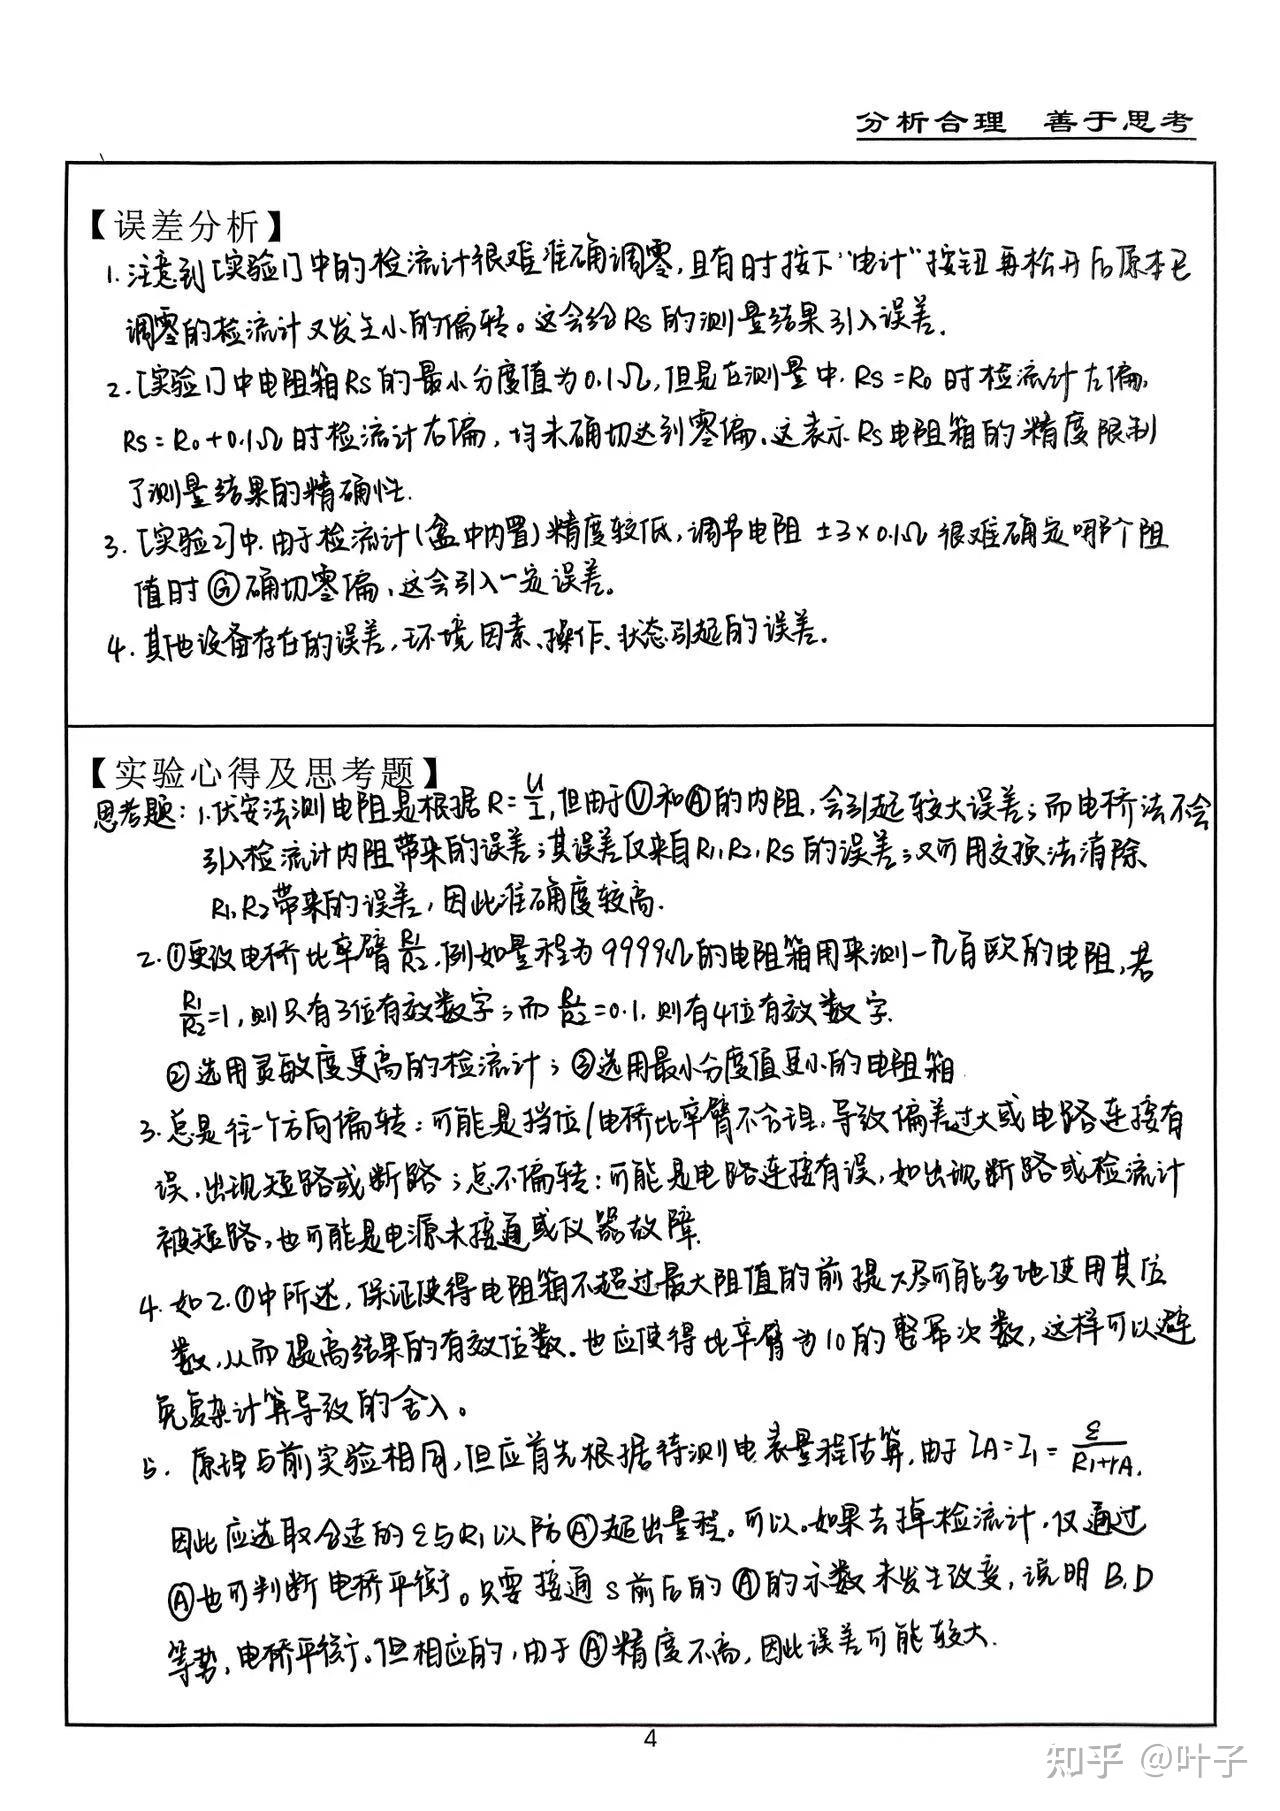 分析合理 善于思考
【误差分析】
1. 注意到[实验1]中的检流计很难准确调零,且有时按下“电计”按钮再松开后原本已
调零的检流计又发生小的偏转。这会给Rs的测量结果引入误差.
2. [实验1]中电阻箱Rs的最小分度值为0.1Ω,但是在测量中. Rs=R0时检流计左偏,
Rs=R0+0.1Ω时检流计右偏,均未确切达到零偏、这表示Rs电阻箱的精度限制
了测量结果的精确性.
3. [实验2]中.由于检流计(盒中内置)精度较低,调节电阻±3×0.1Ω很难确定哪个阻
值时Ⓖ确切零偏,这会引入一定误差。
4. 其他设备存在的误差,环境因素、操作、状态引起的误差.
【实验心得及思考题】
思考题: 1.伏安法测电阻是根据R=U/I,但由于Ⓥ和Ⓐ的内阻,会引起较大误差;而电桥法不会
引入检流计内阻带来的误差;其误差仅来自R1,R2,Rs的误差;又可用交换法消除
R1,R2带来的误差,因此准确度较高.
2.①更改电桥比率臂R1/R2,例如量程为9999Ω的电阻箱用来测一九百欧的电阻,若
R1/R2=1,则只有3位有效数字;而R1/R2=0.1,则有4位有效数字.
②选用灵敏度更高的检流计;③选用最小分度值更小的电阻箱
3.总是往一个方向偏转:可能是挡位/电桥比率臂不合理,导致偏差过大或电路连接有
误,出现短路或断路;总不偏转:可能是电路连接有误,如出现断路或检流计
被短路,也可能是电源未接通或仪器故障.
4.如2.①中所述,保证使得电阻箱不超过最大阻值的前提尽可能多地使用其位
数,从而提高结果的有效位数.也应使得比率臂为10的整幂次数,这样可以避
免复杂计算导致的舍入。
5. 原理与前实验相同,但应首先根据待测电表量程估算,由于IA=I1=ε/(R1+rA),
因此应选取合适的ε与R1以防Ⓐ超出量程。可以.如果去掉检流计,仅通过
Ⓐ也可判断电桥平衡。只要接通S前后的Ⓐ的示数未发生改变,说明B,D
等势,电桥平衡.但相应的,由于Ⓐ精度不高,因此误差可能较大.
4
知乎 @叶子